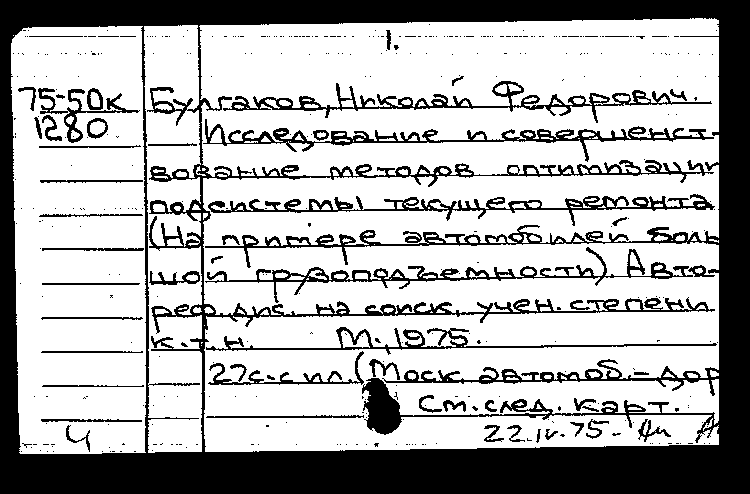 1.
75-50к Булгаков, Николай Федорович.
1280 Исследование и совершенст-
вование методов оптимизации
подсистемы текущего ремонта
(На примере автомобилей боль
шой грузоподъемности). Авто-
реф. дис. на соиск. учен. степени
к.т.н. М., 1975.
27с. с ил. (Моск. автомоб.-дор
См. след. карт.
Ч 22.IV.75-